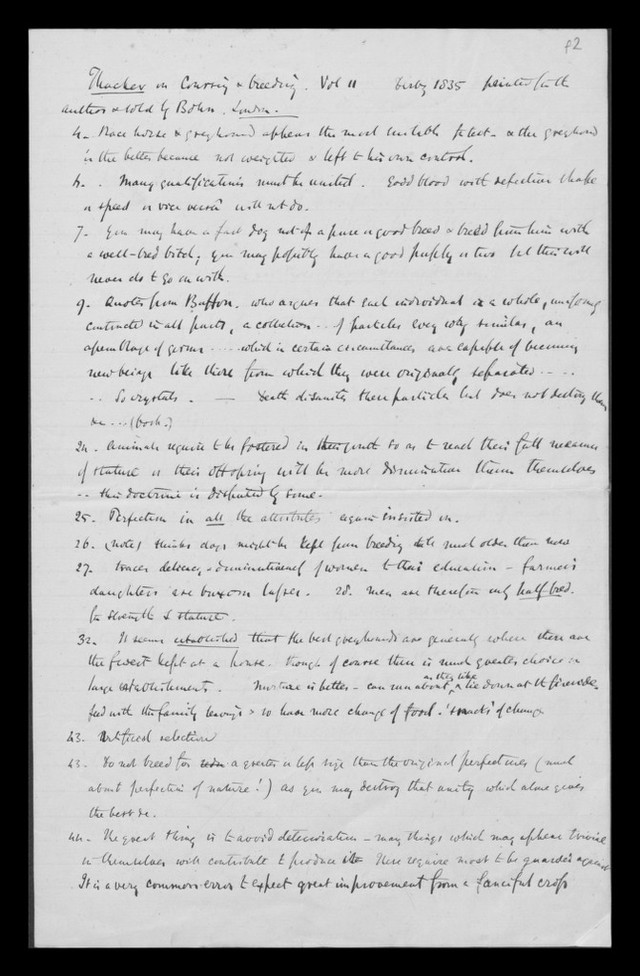 92
Thacker on Coursing & breeding. Vol II Derby 1835 printed for the
author & sold by Bohn. London.
4. Race horse & greyhound appears the most suitable select. & the greyhound
is the better because not weighted & left to his own control.
4. . Many qualifications must be united. Good blood with defective shape
or speed or vice versâ will not do.
7. You may have a fast dog not of a pure or good breed & breed from him with
a well-bred bitch; you may possibly have a good puppy or two but this will
never do to go on with.
9. Quotes from Buffon. who argues that each individual is a whole, uniformly
in all parts, a collection ... of particles every way similar, an
assemblage of germs ..... which in certain circumstances are capable of becoming
new beings like those from which they were originally separated ....
.. So crystals. — Death disunites these particles but does not destroy them
&c ... (bosh.)
24. animals require to be fostered in so as to reach their full measure
of stature or their offspring will be more diminutive than themselves
.. this doctrine is disputed by some.
25. Perfection in all the attributes again insisted on.
26. (note) thinks dogs might be kept from breeding till much older than now
27. traces delicacy & diminutiveness of women to their education – farmer's
daughters are buxom lasses. 28. men are therefore only half bred
for strength & stature.
32. It seems established that the best greyhounds are generally where there are
the fewest kept at a house. though of course there is much greater choice in
large establishments. Nurture is better – can run about, as they like & lie down at the fireside,
fed with the family leavings & so have more change of food. 'smacks' of change
43. Artificial selection
43. Do not breed for a greater or less size than the original perfect ones (much
about perfection of nature!) as you may destroy that unity which alone gives
the best &c.
44. The great thing is to avoid deterioration – many things which may appear trivial
in themselves will contribute to produce it. These require most to be guarded against
It is a very common error to expect great improvement from a fanciful cross